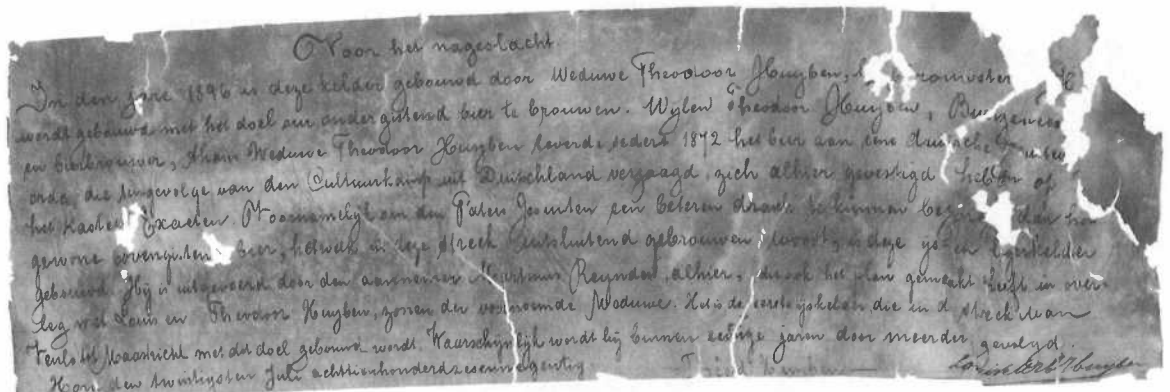 Voor het nageslacht
In den jare 1896 is deze kelder gebouwd door Weduwe Theodoor Huyben,
wordt gebouwd met het doel om ondergistend bier te brouwen. Wylen Theodoor Huyben,
en bierbrouwer, thans Weduwe Theodoor Huyben leverde seders 1872 het bier aan eene duitsche
orde, die tengevolge van den Cultuurkamp uit Duitschland verjaagd, zich alhier gevestigd hebben op
het Kasteel Exaeten Voornamelijk om den Paters Jezuiten een beteren drank te kunnen dan het
gewone bovengisten bier, hetwelk in deze streek uitsluitend gebrouwen wordt, is deze ys- en legerkelder
gebouwd. Hij is uitgevoerd door den aannemer Martinus Reynders, alhier, die ook het plan gemaakt heeft in over-
leg met Louis en Theodoor Huyben, zonen der voornoemde Weduwe. Het is de eerste ijskelder die in d streek van
Venlo tot Maastricht met dit doel gebouwd wordt. Waarschynlyk wordt hij binnen eenige jaren door meerder gevolgd.
Horn den twintigsten Juli achttienhonderdzesennegentig